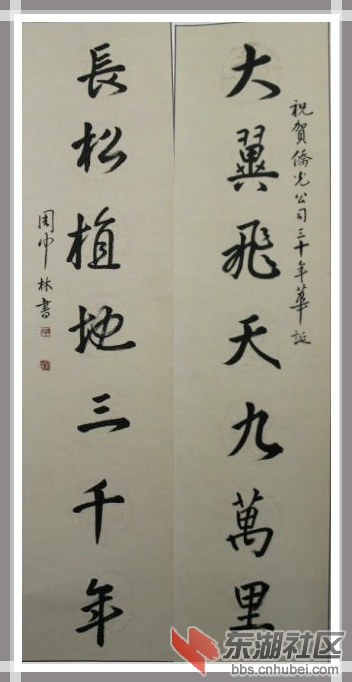 祝賀僑光公司三十年華誕
大翼飛天九萬里
長松植地三千年
周中林書
东湖社区
bbs.cnhubei.com